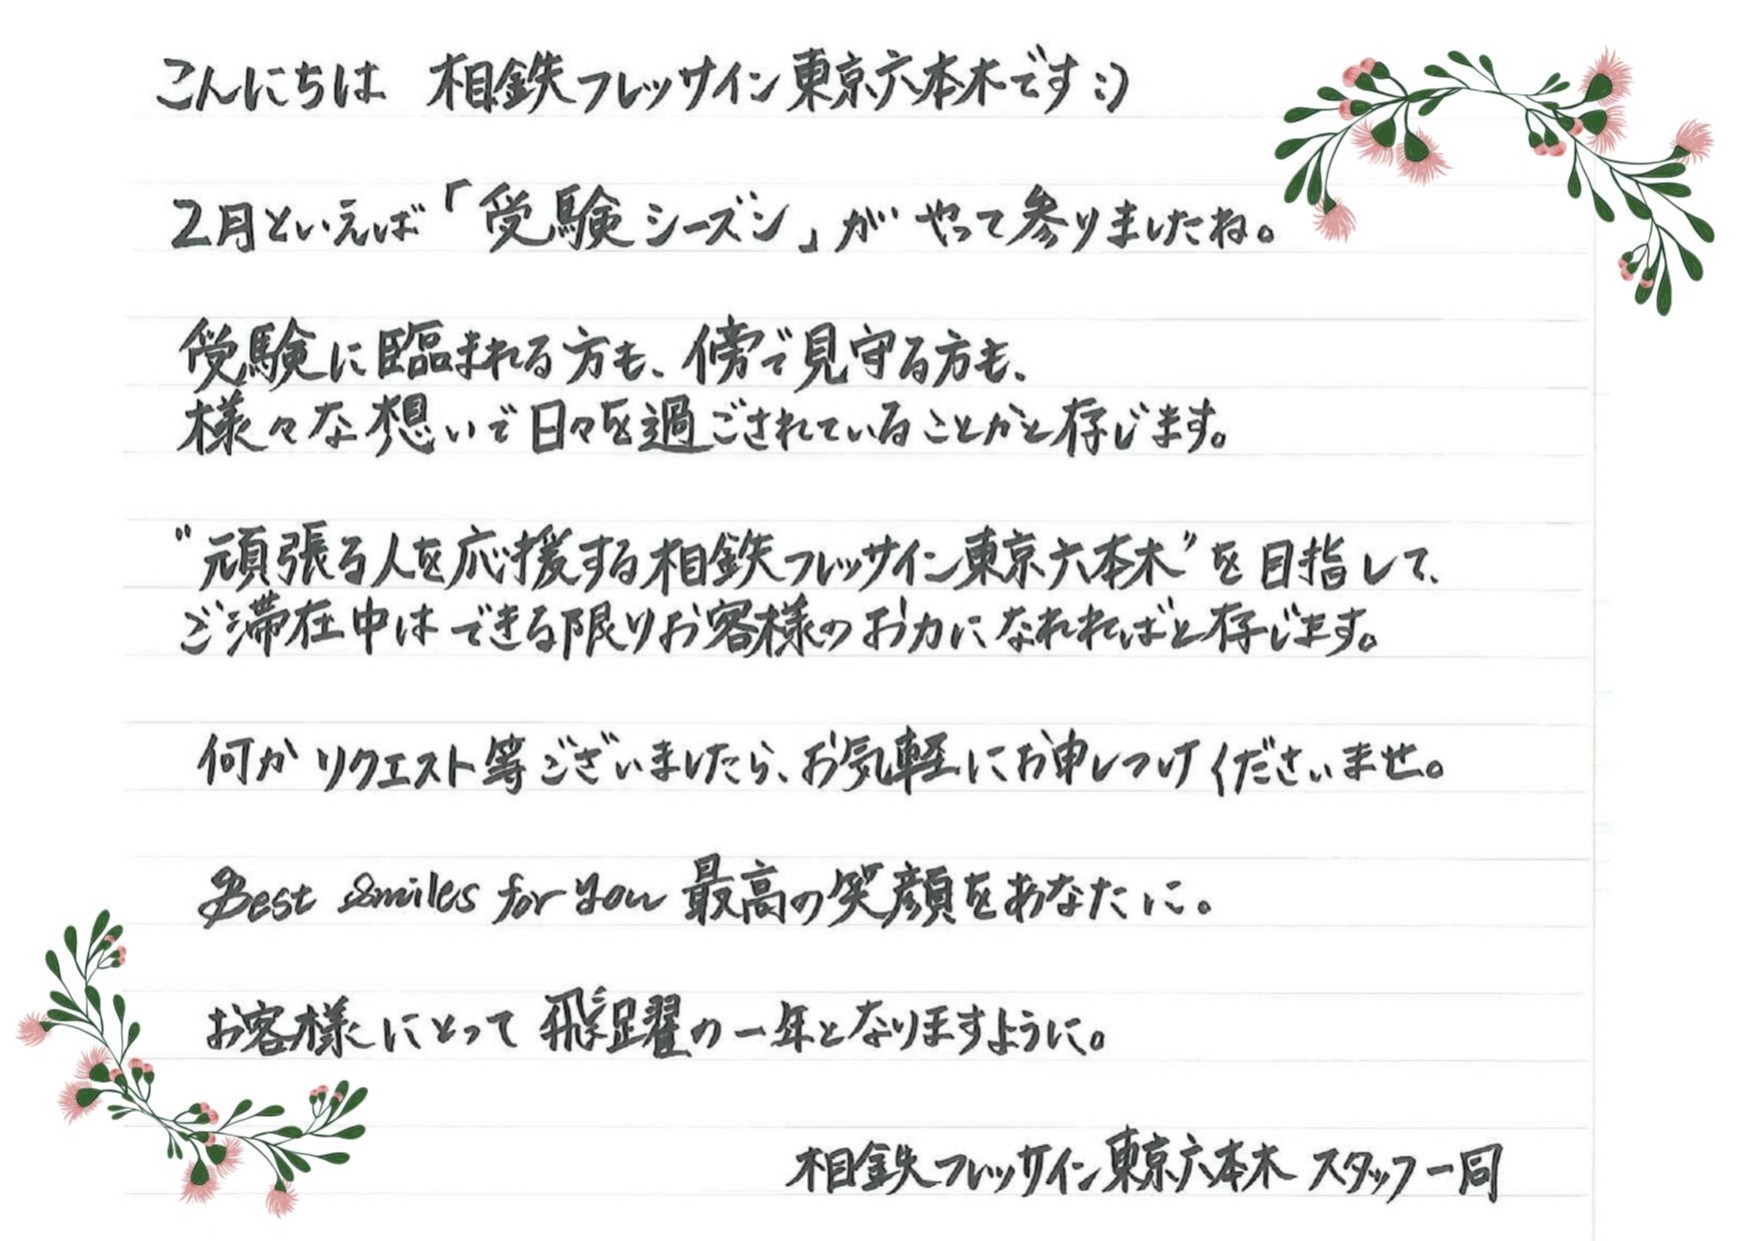 こんにちは 相鉄フレッサイン東京六本木です:)
2月といえば「受験シーズン」がやって参りましたね。
受験に臨まれる方も、傍で見守る方も、
様々な想いで日々を過ごされていることかと存じます。
"頑張る人を応援する相鉄フレッサイン東京六本木"を目指して、
ご滞在中はできる限りお客様のお力になれればと存じます。
何かリクエスト等ございましたら、お気軽にお申しつけくださいませ。
Best smiles for you 最高の笑顔をあなたに。
お客様にとって飛躍の一年となりますように。
相鉄フレッサイン東京六本木 スタッフ一同